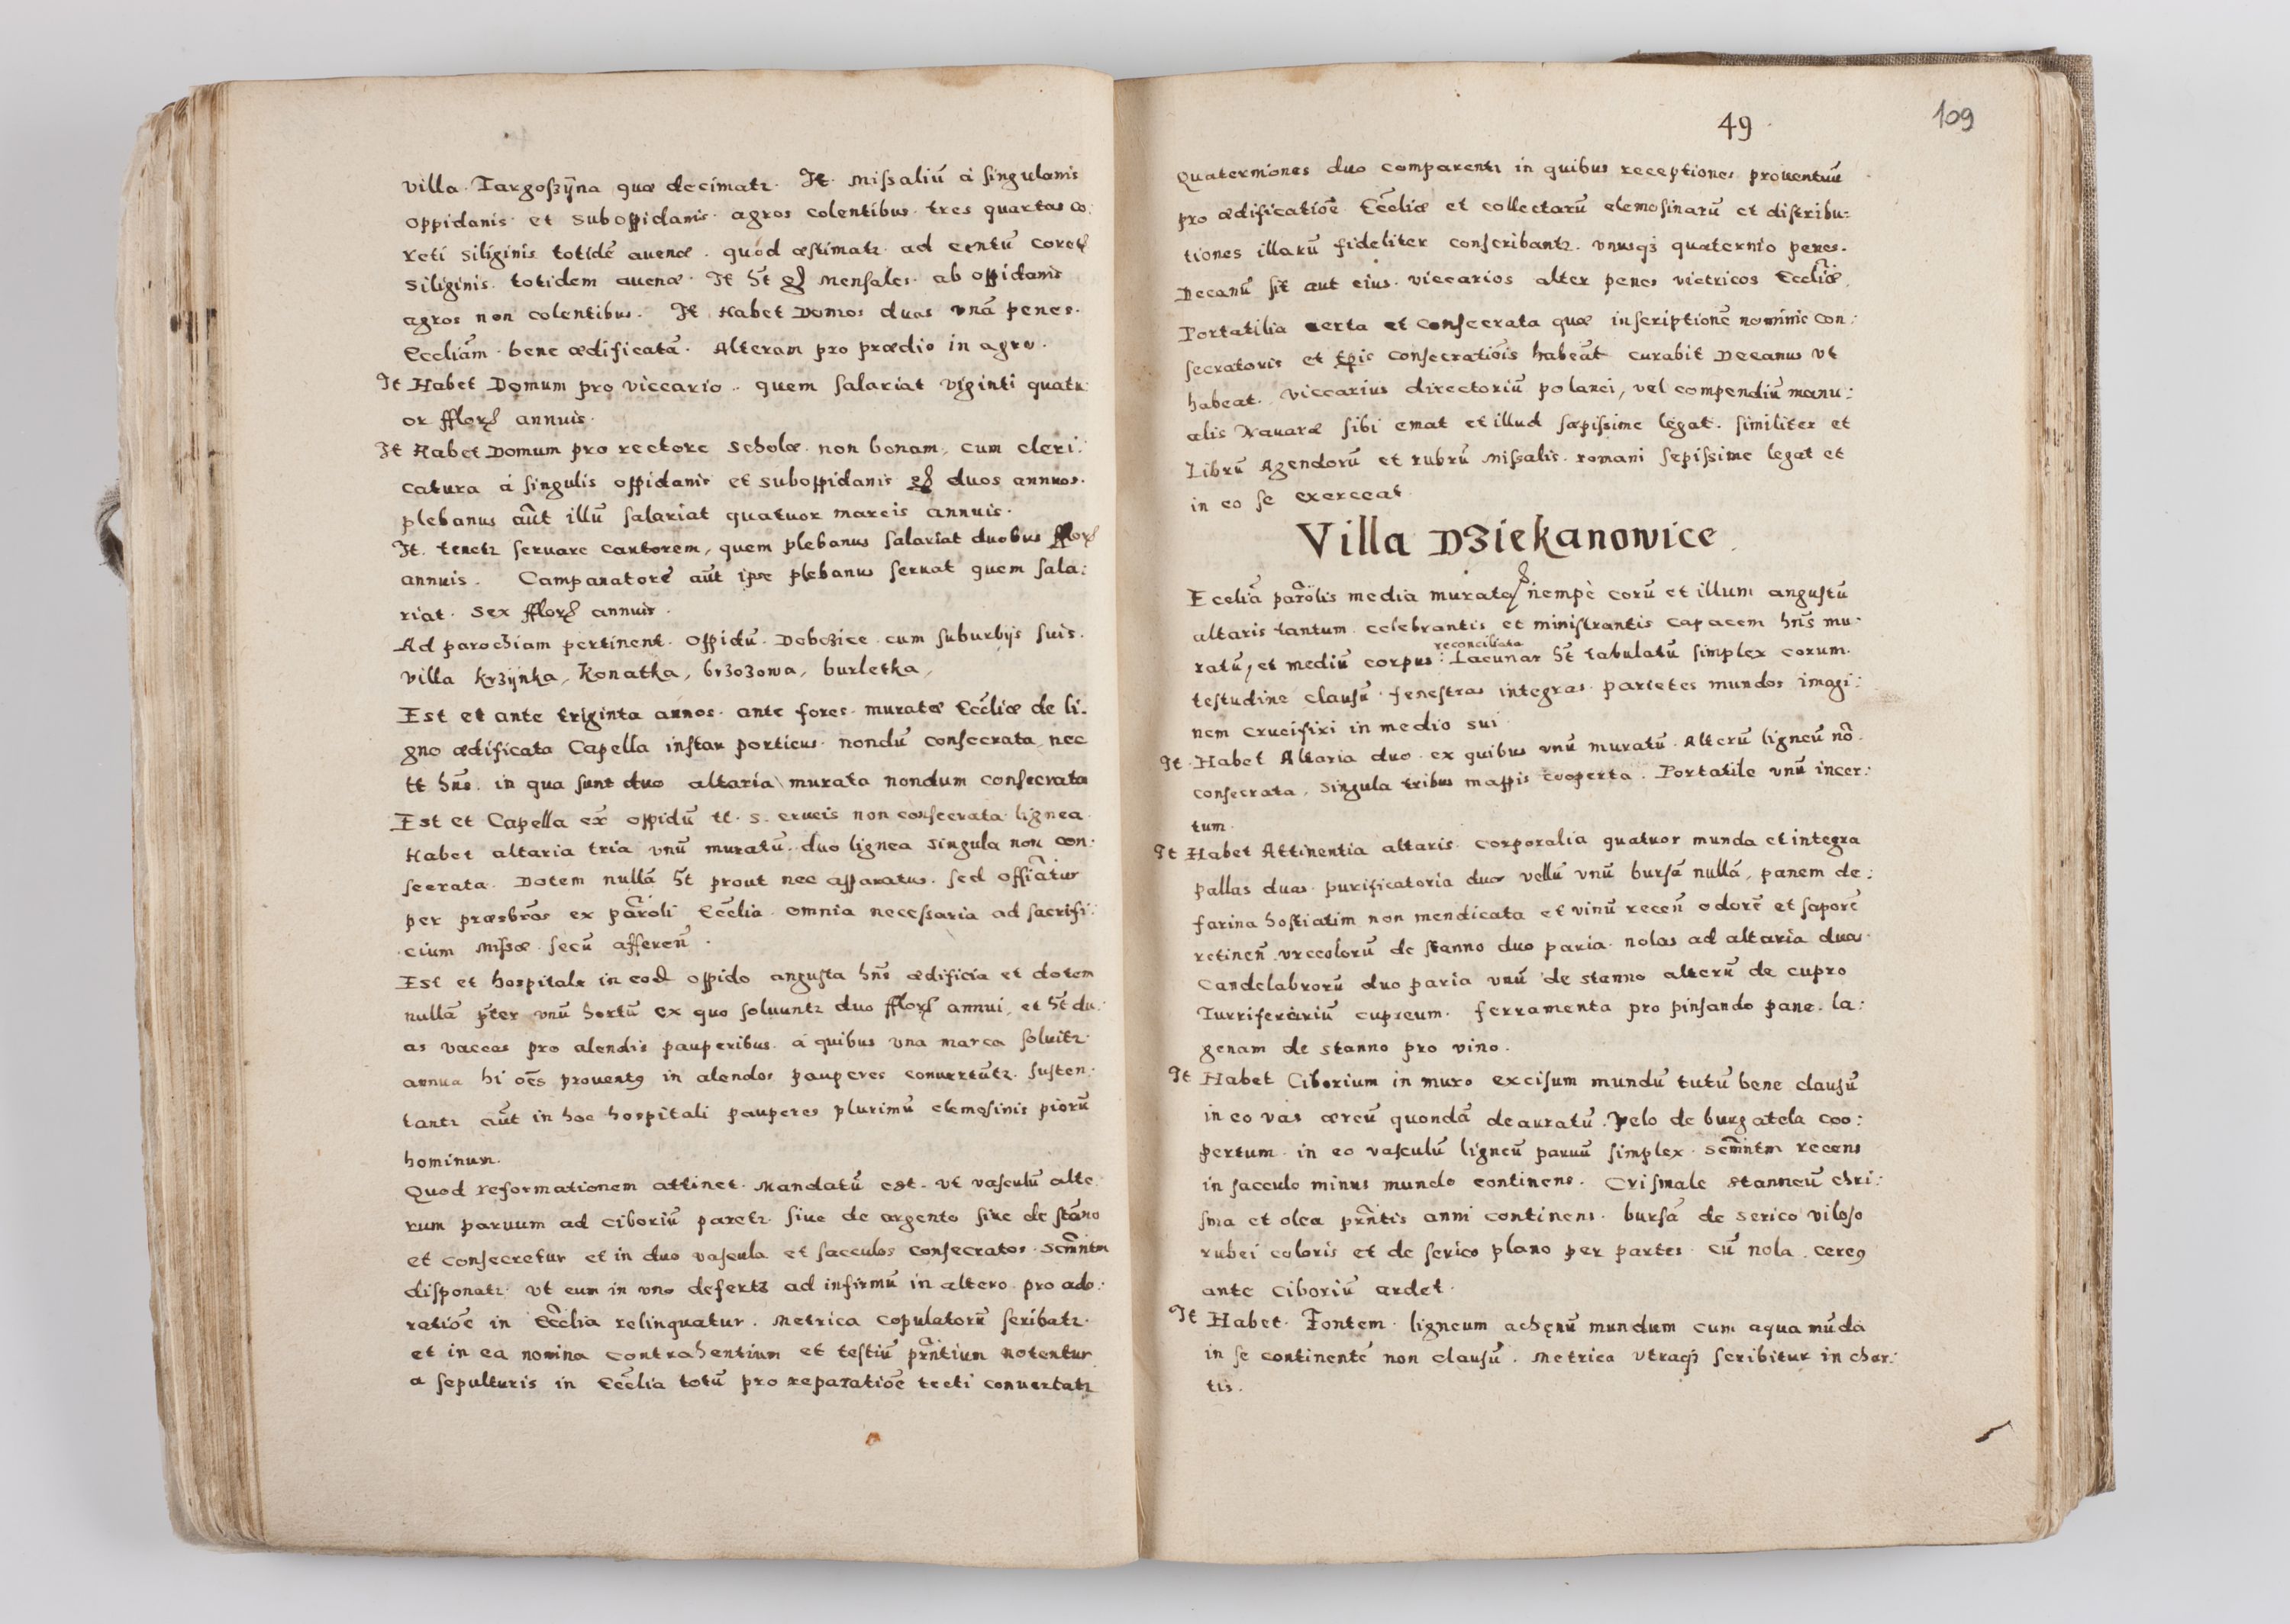 villa Targoszÿna quæ decimatr. It Missaliũ à singulanis
oppidanis et suboppidanis agros colentibus tres quartas co:
reti siliginis totidẽ auenæ. quod æstimatr ad centũ coret
siliginis totidem auenæ. It ht mensales ab oppidanis
agros non colentibus. It Habet Domos duas vnã penes
Eccliãm bene ædificatã. Alteram pro prædio in agro.
It Habet Domum pro viccario quem salariat viginti quatu:
or fflor annuis.
It Habet Domum pro rectore scholæ non bonam, cum cleri:
catura á singulis oppidanis et suboppidanis duos annuos.
plebanus aũt illũ salariat quatuor marcis annuis.
It. tenetr seruare cantorem, quem plebanus salariat duobus fflor
annuis. Campanatorẽ aũt ipse plebanus seruat quem sala:
riat sex fflor annuis.
Ad parochiam pertinent oppidũ Dobczice cum suburbijs suis.
villa krzÿnka, Konatka, brzozowa, burletka,
Est et ante triginta annos ante fores muratæ Eccliæ de li-
gno ædificata Capella instar porticus nondũ consecrata nec
tt hñs. in qua sunt duo altaria murata nondum consecrata
Est et Capella ex oppidũ tt. S. crucis non consecrata lignea
Habet altaria tria vnũ muratũ duo lignea singula non con:
secrata. Dotem nullã ht prout nec apparatus. sed offiatur
per præsbros ex paroli Ecclia omnia necessaria ad sacrifi:
cium Missæ secũ afferen.
Est et hospitale in eod oppido angusta hñs ædificia et dotem
nullã pter vnũ hortũ ex quo soluuntr duo fflor annui, et ht du:
as vaccas pro alendis pauperibus á quibus vna marca soluitr
annua hi oẽs prouent9 in alendos pauperes conuertũtr. susten:
tantr aũt in hoc hospitali pauperes plurimũ elemosinis piorũ
hominum.
Quod reformationem attinet. Mandatũ est. vt vasculũ alte:
rum paruum ad ciboriũ paretr. siue de argento siue de stãno
et consecretur et in duo vascula et sacculos consecratos Scmntm
disponatr. vt cum in vno defertr ad infirmũ in altero pro ado:
ratiõe in Ecclia relinquatur. Metrica copulatorũ scribatr.
et in ea nomina contrahentium et testiũ pñtium notentur
a sepulturis in Ecclia totũ pro reparatiõe tecti conuertatr
49 109
Quaterniones duo comparentr in quibus receptiones prouentuũ
pro ædificatiõe Eccliæ et collectarũ elemosinarũ et distribu=
tiones illarũ fideliter conscribantr. vnusq3 quaternio penes
Decanũ sit aut eius viccarios alter penes vietricos Eccliæ.
Portatilia certa et consecrata quæ inscriptionẽ nominis con:
secratoris et tpis consecratiõis habeãt curabit Decanus vt
habeat. Viccarius directoriũ polanci, vel compendiũ manu:
alis Nauaræ sibi emat et illud sæpissime legat. similiter et
Librũ Agendorũ et rubrũ Missalis romani sepissime legat et
in eo se exerceat.
Villa Dziekanowice
Ecclia parolis media murata nempè corũ et illum angustũ
altaris tantum celebrantis et ministrantis capacem hñs mu-
ratũ, et mediũ corpus: reconciliata Lacunar ht tabulatũ simplex corum
testudine clausũ fenestras integras parietes mundos imagi:
nem crucifixi in medio sui
It Habet Altaria duo ex quibus vnũ muratũ. Alterũ ligneũ nõ
consecrata, singula tribus mappis cooperta. Portatile vnũ incer:
tum.
It Habet Attinentia altaris corporalia quatuor munda et integra
pallas duas purificatoria duo vellũ vnũ bursã nullã, panem de:
farina hostiatim non mendicata et vinũ recen̄ odorẽ et saporẽ
retinen̄ vrceolorũ de stanno duo paria nolas ad altaria duas
Candelabrorũ duo paria vnũ de stanno alterũ de cupro
Turriferariũ cupreum. ferramenta pro pinsando pane. la:
genam de stanno pro vino.
It Habet Ciborium in muro excisum mundũ tutũ bene clausũ
in eo vas æreũ quondã deauratũ. Velo de burgatela coo:
pertum in eo vasculũ ligneũ paruũ simplex Scmntm recens
in sacculo minus mundo continens. Crismale stanneũ chri:
sma et olea pñtis anni continens. bursã de serico viloso
rubei coloris et de serico plano per partes cũ nola. cere9
ante Ciboriũ ardet.
It Habet Fontem ligneum achenũ mundum cum aqua mũda
in se continentẽ non clausũ. Metrica vtraq3 scribitur in char:
tis.